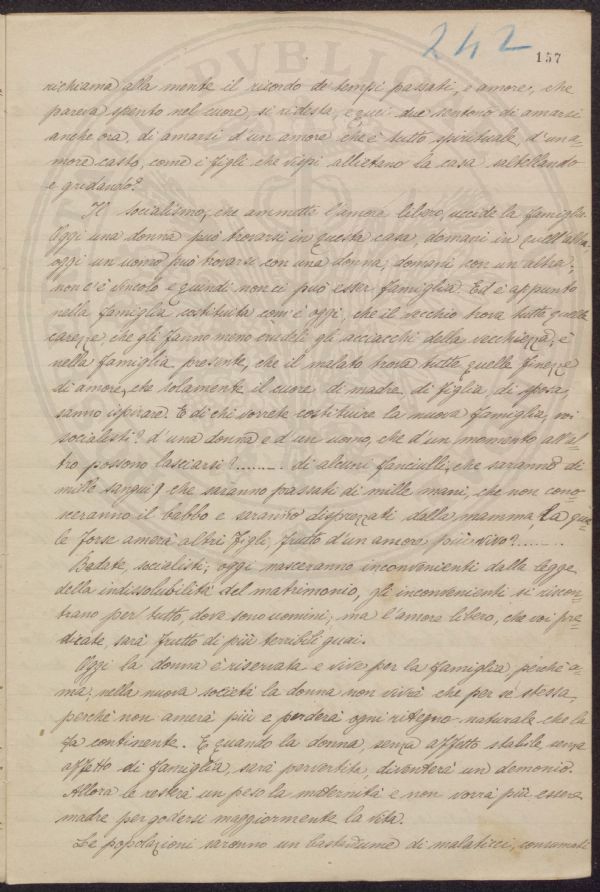 242
157
richiama alla mente il ricordo de' tempi passati, e amore, che
pareva spento nel cuore, si ridesta, e quei due sentono di amarsi
anche ora, di amarsi d'un amore che è tutto spirituale, d'una-
more casto, come i figli che vispi allietano la casa saltellando
e gridando?
Il socialismo, che ammette l'amore libero, uccide la famiglia.
Oggi una donna può trovarsi in questa casa, domani in quell'altra,
oggi un uomo può trovarsi con una donna, domani con un altra;
non c'è vincolo e quindi non ci può esser famiglia. Ed è appunto
nella famiglia costituita com'è oggi, che il vecchio trova tutte quelle
carezze, che gli fanno meno crudeli gli acciacchi della vecchiezza, è
nella famiglia presente, che il malato trova tutte quelle finezze
di amore, che solamente il cuore di madre, di figlia, di sposa,
sanno ispirare. E di chi vorrete costituire la nuova famiglia, voi
socialisti? d'una donna e d'un uomo, che d'un momento all'al-
tro possono lasciarsi?......... di alcuni fanciulli, che saranno di
mille sangui? che saranno passati di mille mani, che non cono-
sceranno il babbo e saranno disprezzati dalla mamma la qua-
le forse amerà altri figli, frutto d'un amore più vivo?.........
Badate, socialisti; oggi nasceranno inconvenienti dalla legge
della indissolubilità del matrimonio, gli inconvenienti si riscon-
trano per tutto, dove sono uomini; ma l'amore libero, che voi pre-
dicate, sarà frutto di più terribili guai.
Oggi la donna è riservata e vive per la famiglia perchè a-
ma; nella nuova società la donna non vivrà che per sè stessa,
perchè non amerà più e perderà ogni ritegno naturale che la
fa continente. E quando la donna, senza affetto stabile, senza
affetto di famiglia, sarà pervertita, diventerà un demonio.
Allora le resterà un peso la maternità e non vorrà più essere
madre per godersi maggiormente la vita.
Le popolazioni saranno un bastardume di malaticci, consumati